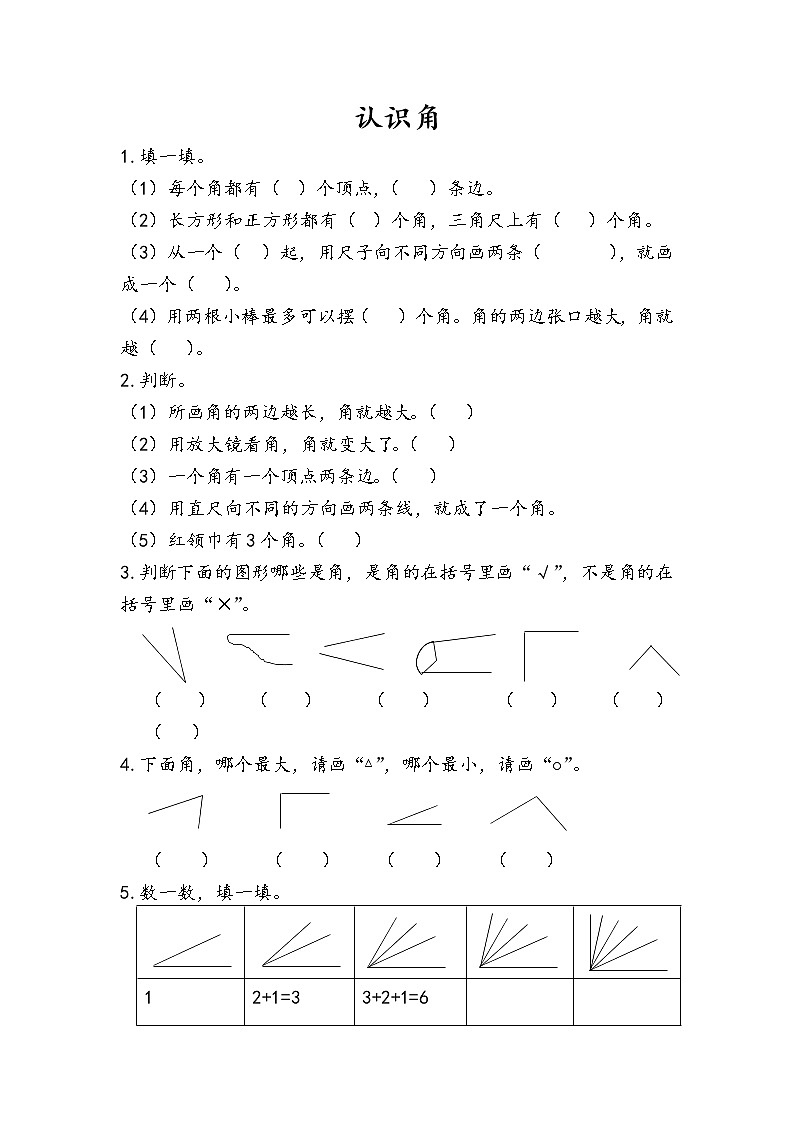 认识角
1.填一填。
（1）每个角都有（ ）个顶点，（ ）条边。
（2）长方形和正方形都有（ ）个角，三角尺上有（ ）个角。
（3）从一个（ ）起，用尺子向不同方向画两条（ ），就画
成一个（ ）。
（4）用两根小棒最多可以摆（ ）个角。角的两边张口越大，角就
越（ ）。
2.判断。
（1）所画角的两边越长，角就越大。（ ）
（2）用放大镜看角，角就变大了。（ ）
（3）一个角有一个顶点两条边。（ ）
（4）用直尺向不同的方向画两条线，就成了一个角。
（5）红领巾有3个角。（ ）
3.判断下面的图形哪些是角，是角的在括号里画“√”，不是角的在
括号里画“×”。
（ ） （ ） （ ） （ ） （ ）
（ ）
4.下面角，哪个最大，请画“△”，哪个最小，请画“○”。
（ ） （ ） （ ） （ ）
5.数一数，填一填。
1 2+1=3 3+2+1=6